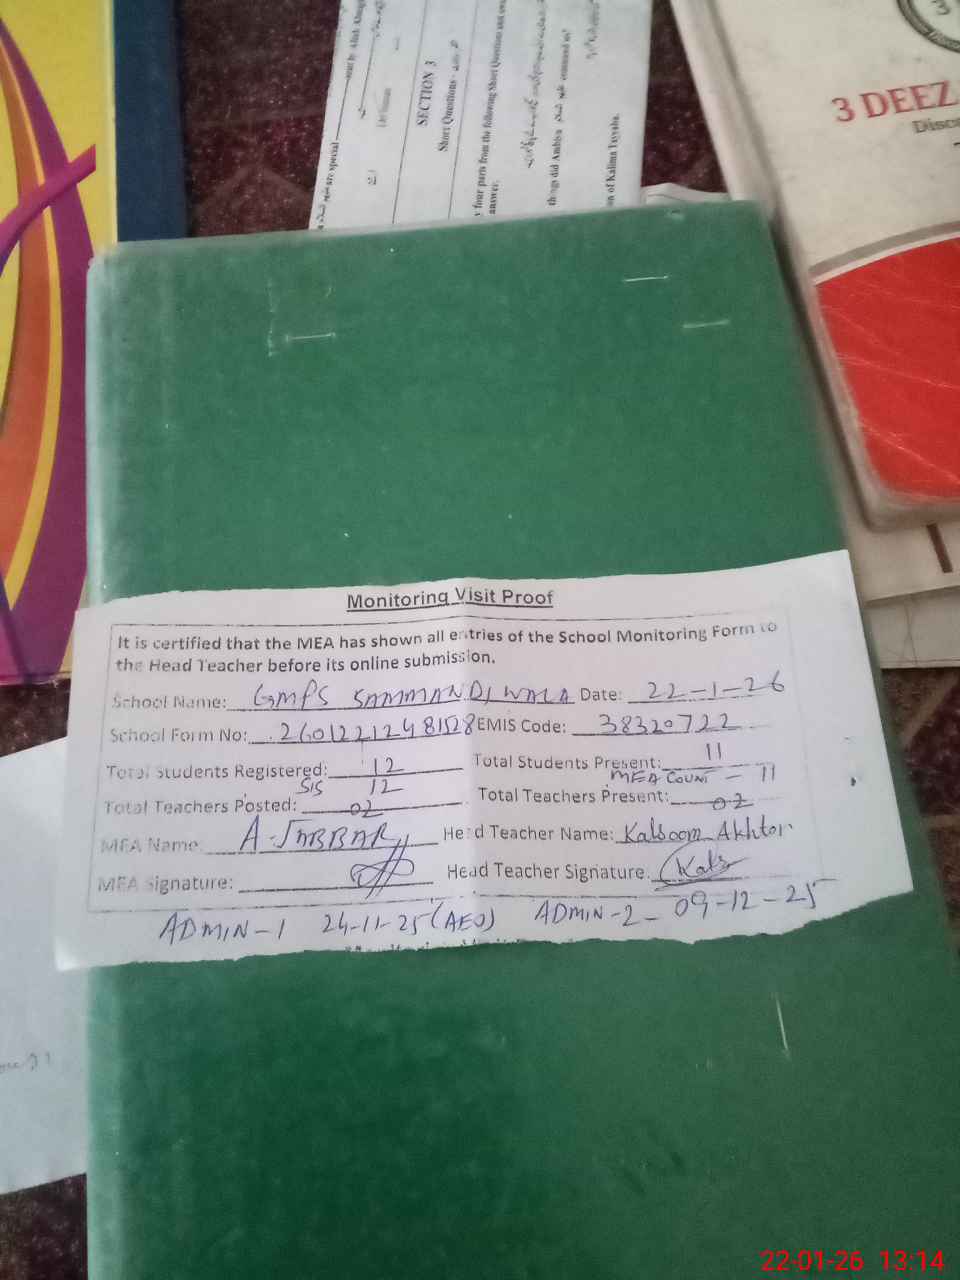 SECTION 3
Short Questions
four parts from the following Short Questions and
answer:
things did Ambbia
command us?
on of Kalima Tayyaba.
are special
3 DEEZ
Monitoring Visit Proof
It is certified that the MEA has shown all entries of the School Monitoring Form to
the Head Teacher before its online submission.
School Name: GMPS SAMMANDIWALA Date: 22-1-26
School Form No: 260122124 81528 EMIS Code: 38320722
Total Students Registered: 12 Total Students Present: 11
SIS 12 MEA COUNT - 11
Total Teachers Posted: 02 Total Teachers Present: 02
MEA Name: A-JABBAR Head Teacher Name: Kalsoom Akhtar
MEA Signature: Head Teacher Signature: Kals
ADMIN-1 24-11-25 (AEO) ADMIN-2- 09-12-25
22-01-26 13:14